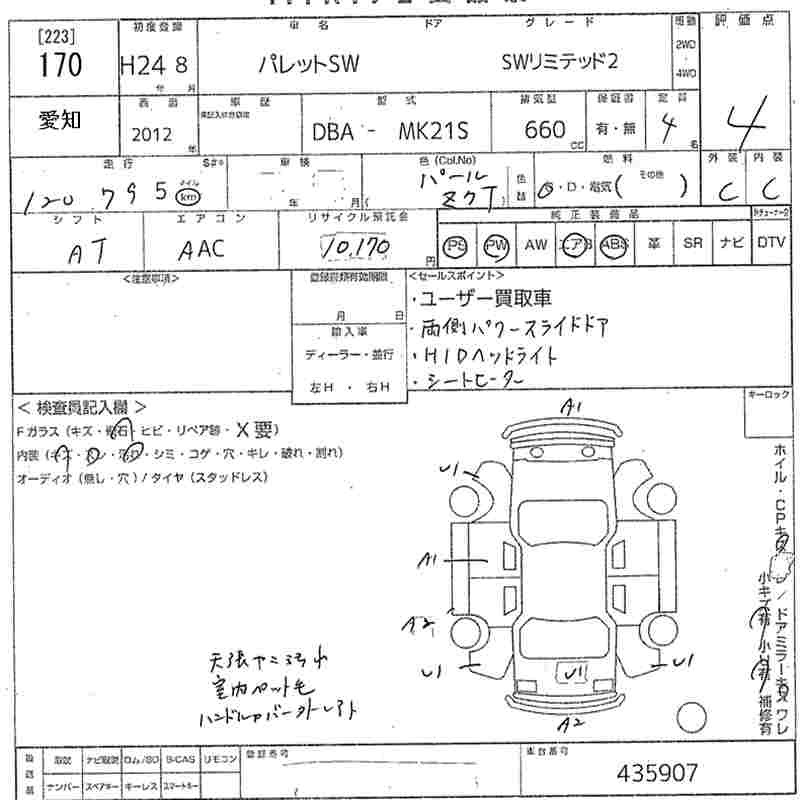 [223]
170
初度登録
H24 8
年 月
車名 ドア グレード
パレットSW SWリミテッド2
駆動
2WD
4WD
評価点
4
愛知
西暦
2012 年
車歴
型式
DBA - MK21S
排気量
660 CC
保証書
有・無
定員
4 名
走行
120,795
マイル
km
車検
年 月
色(Col.No)
パール
ZQT
色替
燃料
G・D・電気( その他 )
外装
C
内装
C
シフト
AT
エアコン
AAC
リサイクル預託金
10,170 円
純正装備品
PS PW AW エアB ABS 革 SR ナビ
DTV
<注意事項>
登録書類有効期限
月 日
輸入車
ディーラー・並行
左H ・ 右H
<セールスポイント>
・ユーザー買取車
・両側パワースライドドア
・HIDヘッドライト
・シートヒーター
キーロック
< 検査員記入欄 >
Fガラス (キズ・飛石・ヒビ・リペア跡・X要)
内装 (キズ・スレ・汚れ・シミ・コゲ・穴・キレ・破れ・割れ)
オーディオ (無し・穴) / タイヤ (スタッドレス)
A1
U1
A1
A2
U1
U1
U1
A2
天張ヤニ汚れ
室内ペット毛
ハンドルカバー外レスト
取説 ナビ取説 ロム/SD B-CAS リモコン
ナンバー スペアキー キーレス スマートキー
登録番号
車台番号
435907